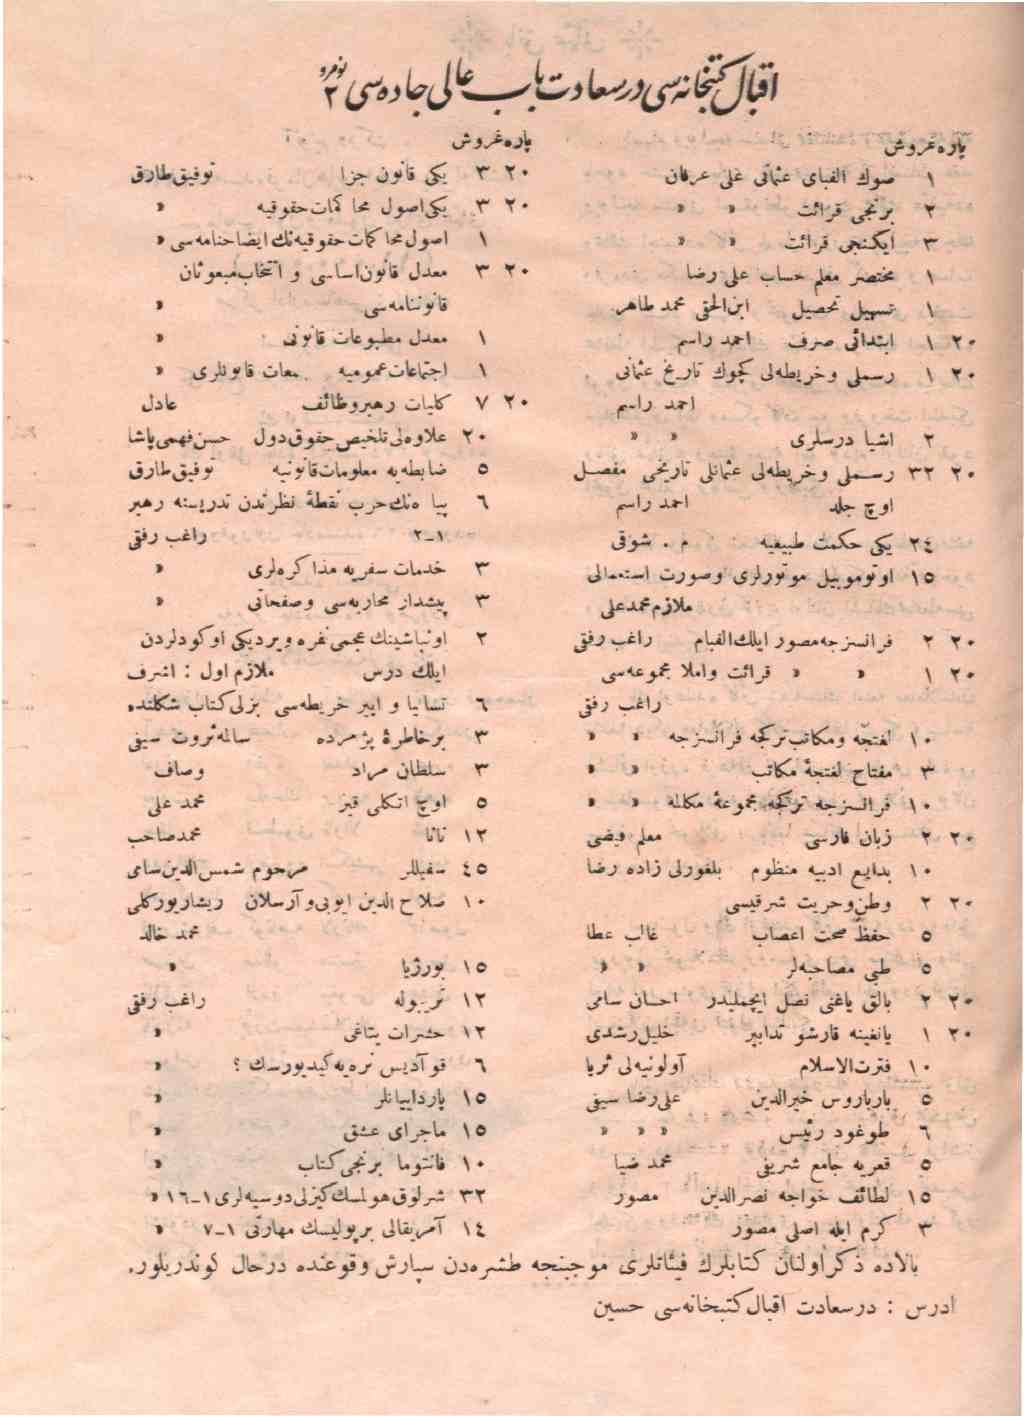 اقبال كتبخانه‌سی درسعادت باب عالی جاده‌سی نومرو ٢
پاره غروش
١ صوك الفبای عثمانی علی عرفان
٢ برنجی قرائت » »
٣ ایكنجی قرائت » »
١ مختصر معلم حساب علی رضا
١ تسهیل تحصیل ابن‌الحقی محمد طاهر
٢٠ ١ ابتدائی صرف احمد راسم
٢٠ ١ رسملی و خریطه‌لی كچوك تاریخ عثمانی
احمد راسم
٢ اشیا درسلری » »
٢٠ ٣٢ رسملی و خریطه‌لی عثمانلی تاریخی مفصل
اوچ جلد احمد راسم
٢٤ یكی حكمت طبیعیه م . شوقی
١٥ اوتوموبیل موتورلری و صورت استعمالی
ملازم محمدعلی
٢٠ ٢ فرانسزجه مصور ایلك الفبام راغب رفقی
٢٠ ١ » » قرائت و املا مجموعه‌سی
راغب رفقی
١٠ لغتچه و مكاتب تركجه فرانسزجه » »
٣ مفتاح لغتچهٔ مكاتب » »
١٠ فرانسزجه تركجه مجموعهٔ مكالمه » »
٢٠ ٢ زبان فارسی معلم فیضی
١٠ بدایع ادبیه منظوم بلغورلی زاده رضا
٢٠ ٢ وطن و حریت شرقیسی
٥ حفظ صحت اعصاب غالب عطا
٥ طبی مصاحبه‌لر » »
٢٠ ٢ بالق یاغنی نصل ایچملیدر احسان سامی
٢٠ ١ یانغینه قارشو تدابیر خلیل رشدی
١٠ فترت‌الاسلام آولونیه‌لی ثریا
٥ بارباروس خیرالدین علی رضا سیفی
٦ طوغود رئیس » » »
٥ قعریه جامع شریفی محمد ضیا
١٥ لطائف خواجه نصرالدین مصور
٣ كرم ایله اصلی مصور
پاره غروش
٢٠ ٣ یكی قانون جزا توفیق طارق
٢٠ ٣ یكی اصول محاكمات حقوقیه »
١ اصول محاكمات حقوقیه‌نك ایضاحنامه‌سی »
٢٠ ٣ معدل قانون اساسی و انتخاب مبعوثان
قانوننامه‌سی »
١ معدل مطبوعات قانونی »
١ اجتماعات عمومیه قانونلری »
٢٠ ٧ كلیات رهبر وظائف عادل
٢٠ علاوه‌لی تلخیص حقوق دول حسن فهمی پاشا
٥ ضابطه‌یه معلومات قانونیه توفیق طارق
٦ پیاده‌نك حرب نقطهٔ نظرندن تدریسنه رهبر
١-٢ راغب رفقی
٣ خدمات سفریه مذاكره‌لری »
٣ پیشدار محاربه‌سی و صفحاتی »
٢ اونباشینك عجمی نفره ویردیكی اوكودلردن
ایلك درس ملازم اول : اشرف
٦ تسالیا و ایپیر خریطه‌سی بزلی كتاب شكلنده
٣ بر خاطرهٔ پژمرده سالمه ثروت سیفی
٣ سلطان مراد وصاف
٥ اوچ اتكلی قیز محمد علی
١٢ نانا محمد صاحب
٤٥ سفیللر مرحوم شمس‌الدین سامی
١٠ صلاح‌الدین ایوبی و آرسلان ریشار یوركلی
محمد خالد
١٥ بورژیا »
١٢ تریبوله راغب رفقی
١٢ حشرات یتاغی »
٦ قوآدیس نره‌یه كیدیورسك ؟ »
١٥ پاردایانلر »
١٥ ماجرای عشق »
١٠ فانتوما برنجی كتاب »
٣٢ شرلوق هولمسك كیزلی دوسیه‌لری ١-١٦ »
١٤ آمریقالی بر پولیسك مهارتی ١-٧ »
بالاده ذكر اولنان كتابلرك فیئاتلری موجبنجه طشره‌دن سپارش وقوعنده درحال كوندریلور.
ادرس : درسعادت اقبال كتبخانه‌سی حسین